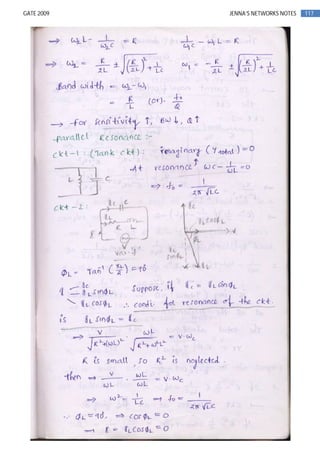 GATE 2009
JENNA'S NETWORKS NOTES 117
→ ω₂L - 1/ω₂C = R    1/ω₁C - ω₁L = R
⇒ ω₂ = R/2L ± √((R/2L)² + 1/LC)    ω₁ = -R/2L ± √((R/2L)² + 1/LC)
Band width = ω₂-ω₁
= R/L (or). f₀/Q
→ For sensitivity ↑, BW ↓, Q↑
parallel Resonance :-
ckt-1 : (Tank ckt) : imaginary (Ytotal) = 0
At resonance ωC - 1/ωL = 0
L C
⇒ f₀ = 1/2π√LC
ckt-2 :
R L
V
φL = Tan⁻¹ (XL/R) = 90
I IC
ILSinφL Suppose, if
IL cosφL ∴ condi: for resonance of the ckt.
is ILSinφL = IC
⇒ V/√R²+(ωL)² · ωL/√R²+ω²L² = V·ωC
R is small, so R² is neglected.
then ⇒ V/ωL · ωL/ωL = V·ωC
⇒ ω² = 1/LC ⇒ f₀ = 1/2π√LC
∵ φL = 90. ⇒ cosφL = 0
⇒ I = ILcosφL = 0